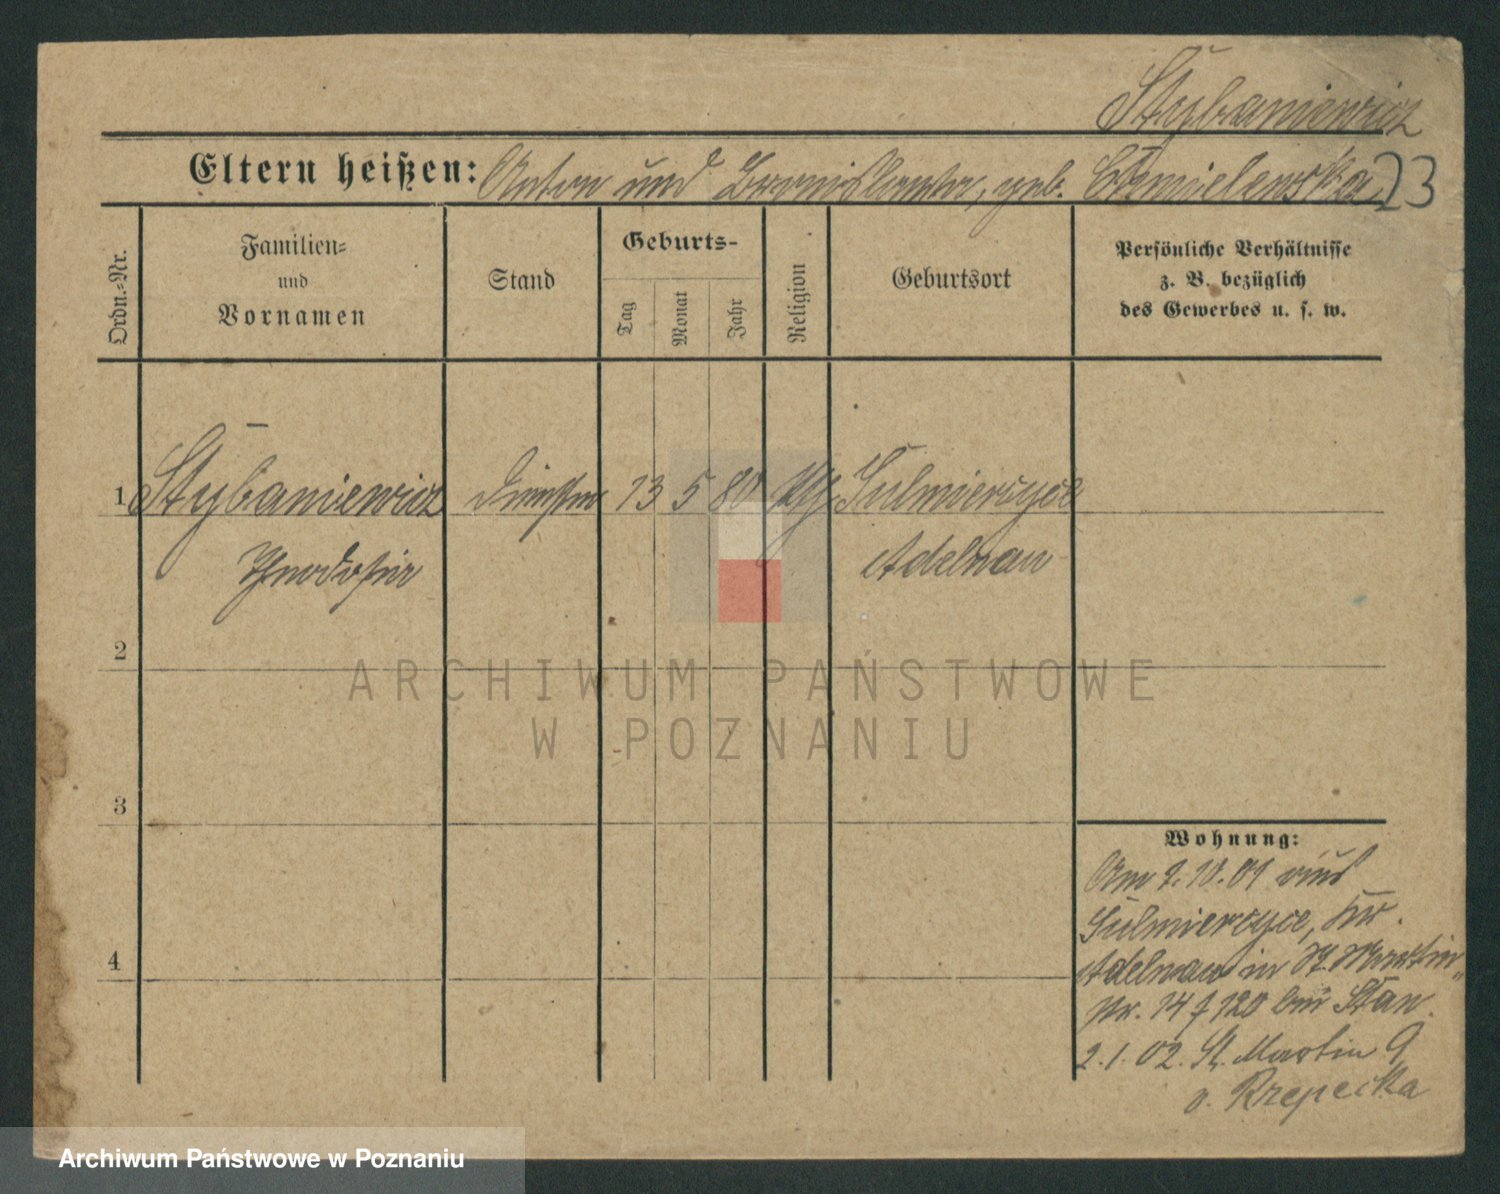 Stybaniewicz
Eltern heißen: Anton und Bronislawa, geb. Chmielewska 23
Ordn.-Nr.
Familien-
und
Vornamen
Stand
Geburts-
Tag
Monat
Jahr
Religion
Geburtsort
Persönliche Verhältnisse
z. B. bezüglich
des Gewerbes u. s. w.
1 Stybaniewicz 13 5 80 Sulmierzyce
Theodosia Adelnau
2
ARCHIWUM PAŃSTWOWE
W POZNANIU
3
4
Wohnung:
Am 2.10.01 aus
Sulmierzyce, Kr.
Adelnau in St. Martin
Nr. 14 120 bei Stan.
2.1.02. St. Martin 9
v. Rzepecka
Archiwum Państwowe w Poznaniu